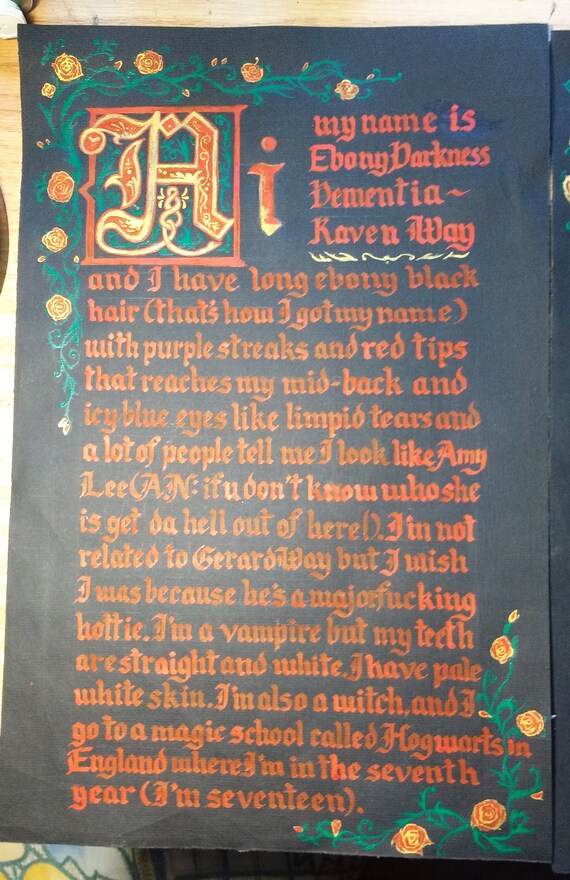 Hi
my name is
Ebony Darkness
Dementia~
Raven Way
and I have long ebony black
hair (that's how I got my name)
with purple streaks and red tips
that reaches my mid-back and
icy blue eyes like limpid tears and
a lot of people tell me I look like Amy
Lee(AN: if u don't know who she
is get da hell out of here!). I'm not
related to Gerard Way but I wish
I was because he's a major fucking
hottie. I'm a vampire but my teeth
are straight and white. I have pale
white skin. I'm also a witch, and I
go to a magic school called Hogwarts in
England where I'm in the seventh
year (I'm seventeen).